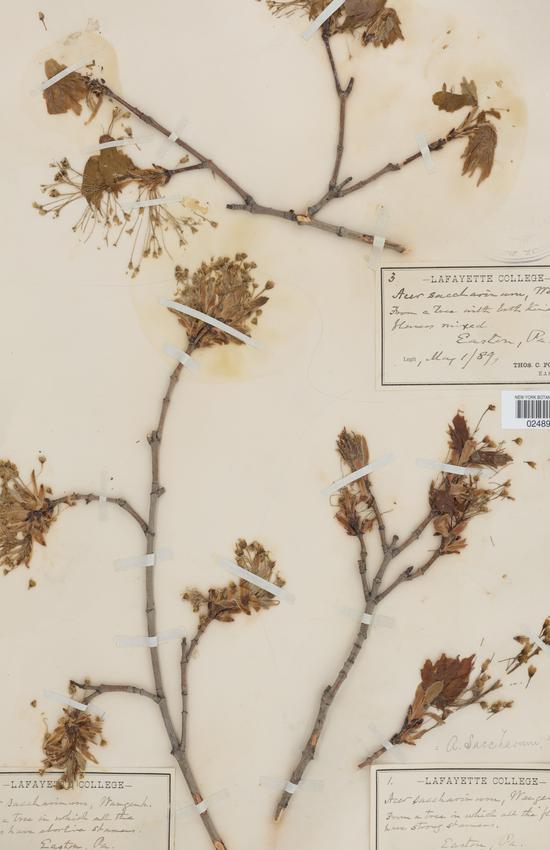 3
—LAFAYETTE COLLEGE—
Acer saccharinum, Wa
From a tree with both kin
flowers mixed
Easton, Pa
Legit, May 1/89,
THOS. C. PO
EAS
NEW YORK BOTAN
02489
A. Saccharum,
COLLEGE—
saccharinum, Wangenh.
a tree in which all the
have abortive stamens.
Easton, Pa.
1.
—LAFAYETTE COLLEGE—
Acer saccharinum, Wangen
From a tree in which all the fl
have strong stamens.
Easton, Pa.